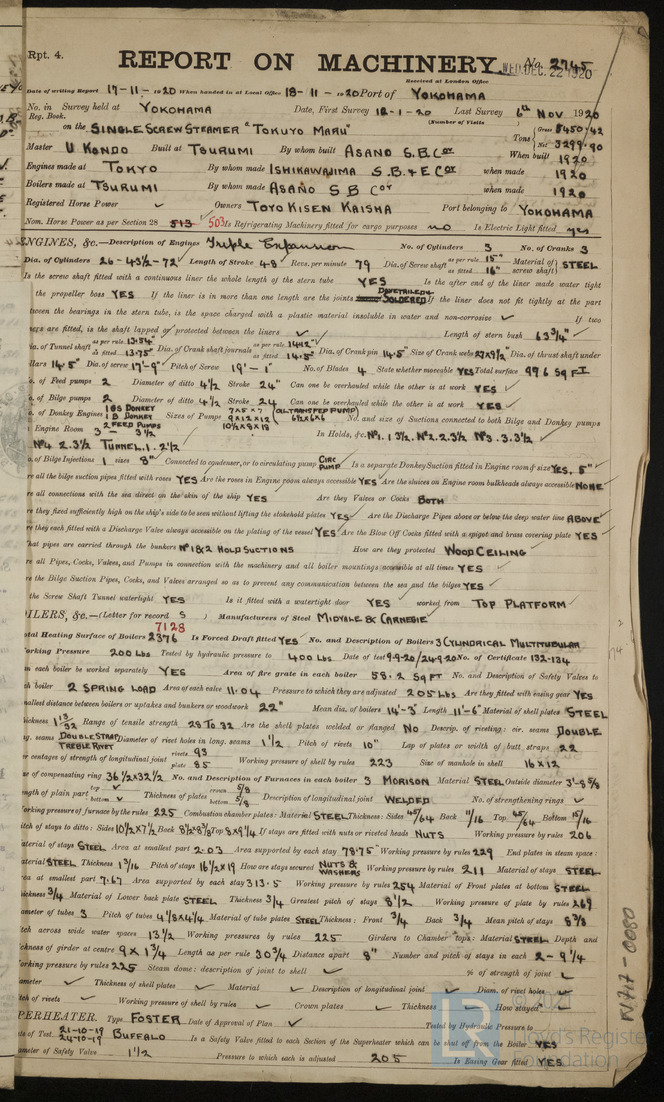 Rpt. 4.
REPORT ON MACHINERY. No. 2745
Received at London Office WED. DEC. 22 1920
Date of writing Report 17-11-1920 When handed in at Local Office 18-11-1920 Port of YOKOHAMA
No. in Survey held at YOKOHAMA Date, First Survey 12-1-20 Last Survey 6th Nov 1920
Reg. Book. (Number of Visits
on the SINGLE SCREW STEAMER "TOKUYO MARU" Tons Gross 5450.42 Net 3299.90
Master U KONDO Built at TSURUMI By whom built ASANO S.B. Coy When built 1920
Engines made at TOKYO By whom made ISHIKAWAJIMA S.B. & E Coy when made 1920
Boilers made at TSURUMI By whom made ASANO S B Coy when made 1920
Registered Horse Power Owners TOYO KISEN KAISHA Port belonging to YOKOHAMA
Nom. Horse Power as per Section 28 513 503 Is Refrigerating Machinery fitted for cargo purposes no Is Electric Light fitted yes
ENGINES, &c.—Description of Engines Triple Expansion No. of Cylinders 3 No. of Cranks 3
Dia. of Cylinders 26-43½-72 Length of Stroke 48 Revs. per minute 79 Dia. of Screw shaft as per rule 15" as fitted 16" Material of screw shaft STEEL
Is the screw shaft fitted with a continuous liner the whole length of the stern tube YES Is the after end of the liner made water tight
the propeller boss YES If the liner is in more than one length are the joints DOVETAILED & SOLDERED If the liner does not fit tightly at the part
tween the bearings in the stern tube, is the space charged with a plastic material insoluble in water and non-corrosive If two
ners are fitted, is the shaft lapped or protected between the liners Length of stern bush 63¾"
ia. of Tunnel shaft as per rule 13.54 as fitted 13.75" Dia. of Crank shaft journals as per rule 14.12" as fitted 14.5" Dia. of Crank pin 14.5" Size of Crank webs 27x9½" Dia. of thrust shaft under
llars 14.5" Dia. of screw 17'-9" Pitch of Screw 19'-1" No. of Blades 4 State whether moveable YES Total surface 99.6 SQ FT
o. of Feed pumps 2 Diameter of ditto 4½ Stroke 24" Can one be overhauled while the other is at work YES
o. of Bilge pumps 2 Diameter of ditto 4½ Stroke 24 Can one be overhauled while the other is at work YES
o. of Donkey Engines 1 GS DONKEY 1 B DONKEY 2 FEED PUMPS Sizes of Pumps 7x5x7 9x12x12 10½x8x18 (OIL TRANSFER PUMP) No. and size of Suctions connected to both Bilge and Donkey pumps
Engine Room 3 — 3½ In Holds, &c. No1. 1 3½. No2. 2.3½ No3. 3.3½
No4 2.3½ TUNNEL. 1. 2½
o. of Bilge Injections 1 sizes 8" Connected to condenser, or to circulating pump CIRC PUMP Is a separate Donkey Suction fitted in Engine room & size YES, 5"
re all the bilge suction pipes fitted with roses YES Are the roses in Engine room always accessible YES Are the sluices on Engine room bulkheads always accessible NONE
re all connections with the sea direct on the skin of the ship YES Are they Valves or Cocks BOTH
re they fixed sufficiently high on the ship's side to be seen without lifting the stokehold plates YES Are the Discharge Pipes above or below the deep water line ABOVE
re they each fitted with a Discharge Valve always accessible on the plating of the vessel YES Are the Blow Off Cocks fitted with a spigot and brass covering plate YES
hat pipes are carried through the bunkers No 1 & 2 HOLD SUCTIONS How are they protected WOOD CEILING
re all Pipes, Cocks, Valves, and Pumps in connection with the machinery and all boiler mountings accessible at all times YES
re the Bilge Suction Pipes, Cocks, and Valves arranged so as to prevent any communication between the sea and the bilges YES
the Screw Shaft Tunnel watertight YES Is it fitted with a watertight door YES worked from TOP PLATFORM
OILERS, &c.—(Letter for record S ) Manufacturers of Steel MIDVALE & CARNEGIE
7128
otal Heating Surface of Boilers 2376 Is Forced Draft fitted YES No. and Description of Boilers 3 CYLINDRICAL MULTITUBULAR
orking Pressure 200 Lbs Tested by hydraulic pressure to 400 Lbs Date of test 9-9-20/24-9-20 No. of Certificate 132-134
n each boiler be worked separately YES Area of fire grate in each boiler 58.2 SQ FT No. and Description of Safety Valves to
ch boiler 2 SPRING LOAD Area of each valve 11.04 Pressure to which they are adjusted 205 Lbs Are they fitted with easing gear YES
mallest distance between boilers or uptakes and bunkers or woodwork 22" Mean dia. of boilers 14'-3" Length 11'-6" Material of shell plates STEEL
hickness 1 13/32 Range of tensile strength 28 To 32 Are the shell plates welded or flanged NO Descrip. of riveting: cir. seams DOUBLE
ng. seams DOUBLE STRAP TREBLE RIVET Diameter of rivet holes in long. seams 1½ Pitch of rivets 10" Lap of plates or width of butt straps 22
er centages of strength of longitudinal joint rivets 93 plate 85 Working pressure of shell by rules 223 Size of manhole in shell 16x12
ze of compensating ring 36½x32½ No. and Description of Furnaces in each boiler 3 MORISON Material STEEL Outside diameter 3'-8⅝
ength of plain part top bottom Thickness of plates crown 5/8 bottom 5/8 Description of longitudinal joint WELDED No. of strengthening rings
orking pressure of furnace by the rules 225 Combustion chamber plates: Material STEEL Thickness: Sides 45/64 Back 11/16 Top 45/64 Bottom 15/16
itch of stays to ditto: Sides 10½x7½ Back 8½x8⅜ Top 8x9¼ If stays are fitted with nuts or riveted heads NUTS Working pressure by rules 206
aterial of stays STEEL Area at smallest part 2.03 Area supported by each stay 78.75 Working pressure by rules 229 End plates in steam space:
aterial STEEL Thickness 1 3/16 Pitch of stays 16½x19 How are stays secured NUTS & WASHERS Working pressure by rules 211 Material of stays STEEL
rea at smallest part 7.67 Area supported by each stay 313.5 Working pressure by rules 254 Material of Front plates at bottom STEEL
hickness ¾ Material of Lower back plate STEEL Thickness ¾ Greatest pitch of stays 8½ Working pressure of plate by rules 269
iameter of tubes 3 Pitch of tubes 4⅛x4¼ Material of tube plates STEEL Thickness: Front ¾ Back ¾ Mean pitch of stays 8⅜
itch across wide water spaces 13½ Working pressures by rules 225 Girders to Chamber tops: Material STEEL Depth and
ickness of girder at centre 9 x 1¾ Length as per rule 30¾ Distance apart 8" Number and pitch of stays in each 2 - 9¼
orking pressure by rules 225 Steam dome: description of joint to shell % of strength of joint
ameter Thickness of shell plates Material Description of longitudinal joint Diam. of rivet holes
itch of rivets Working pressure of shell by rules Crown plates Thickness How stayed
UPERHEATER. Type FOSTER Date of Approval of Plan Tested by Hydraulic Pressure to
ate of Test 21-10-19 24-10-19 BUFFALO Is a Safety Valve fitted to each Section of the Superheater which can be shut off from the Boiler YES
iameter of Safety Valve 1½ Pressure to which each is adjusted 205 Is Easing Gear fitted YES
W717-0080
LR
© 2021
Lloyd's Register
Foundation